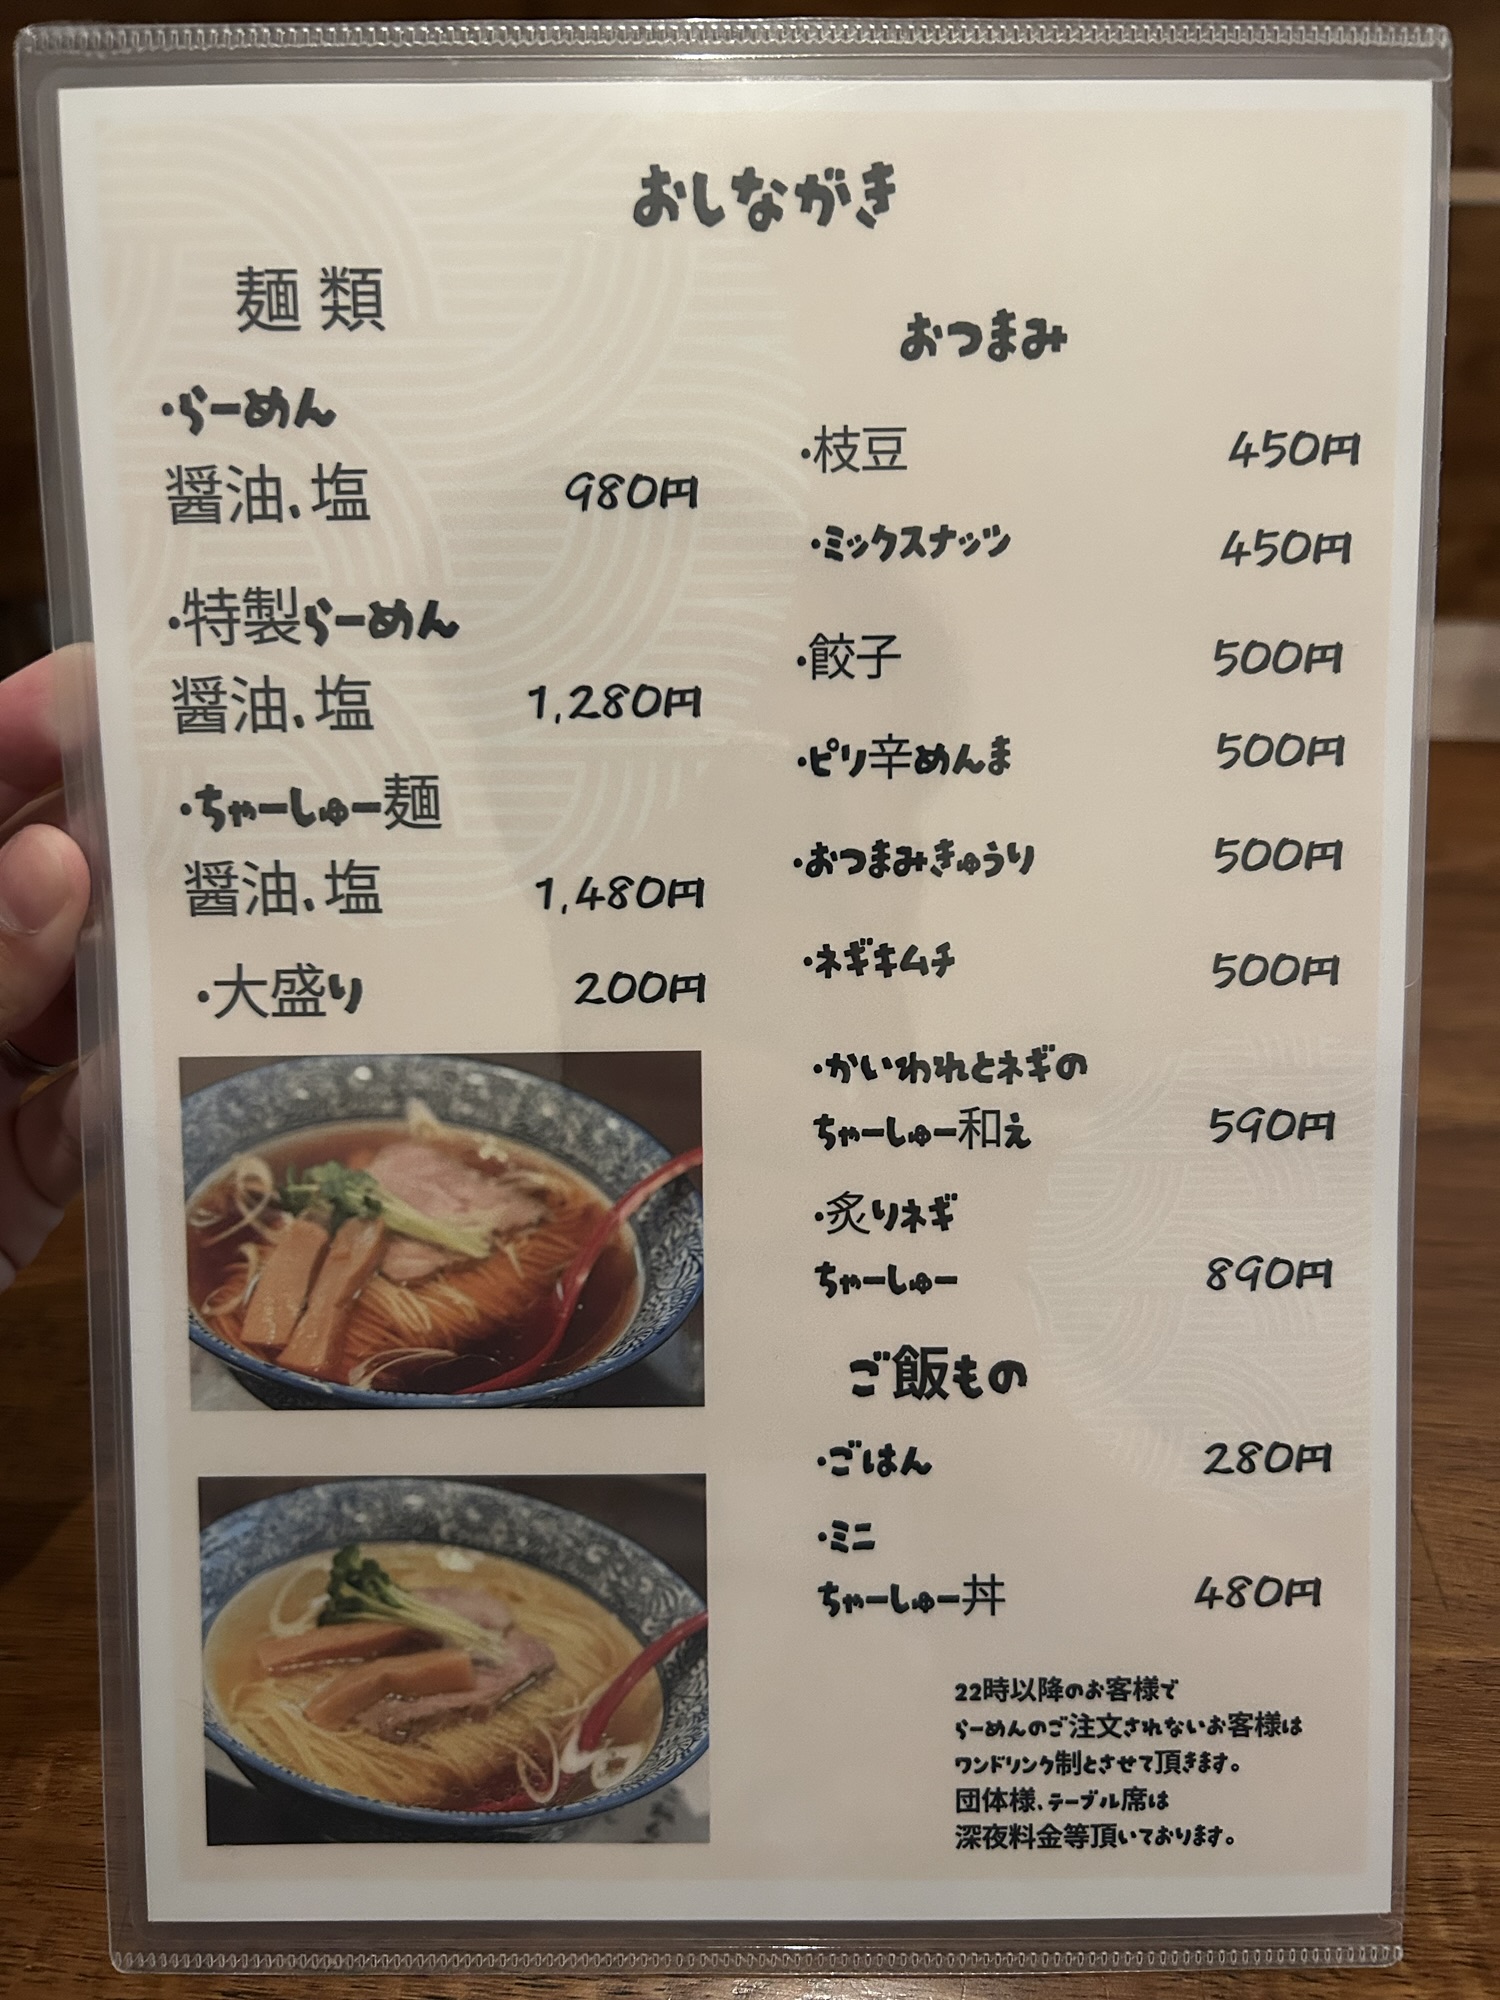 おしながき
麺類
・らーめん
醤油、塩 980円
・特製らーめん
醤油、塩 1,280円
・ちゃーしゅー麺
醤油、塩 1,480円
・大盛り 200円
おつまみ
・枝豆 450円
・ミックスナッツ 450円
・餃子 500円
・ピリ辛めんま 500円
・おつまみきゅうり 500円
・ネギキムチ 500円
・かいわれとネギの
ちゃーしゅー和え 590円
・炙りネギ
ちゃーしゅー 890円
ご飯もの
・ごはん 280円
・ミニ
ちゃーしゅー丼 480円
22時以降のお客様で
らーめんのご注文されないお客様は
ワンドリンク制とさせて頂きます。
団体様、テーブル席は
深夜料金等頂いております。